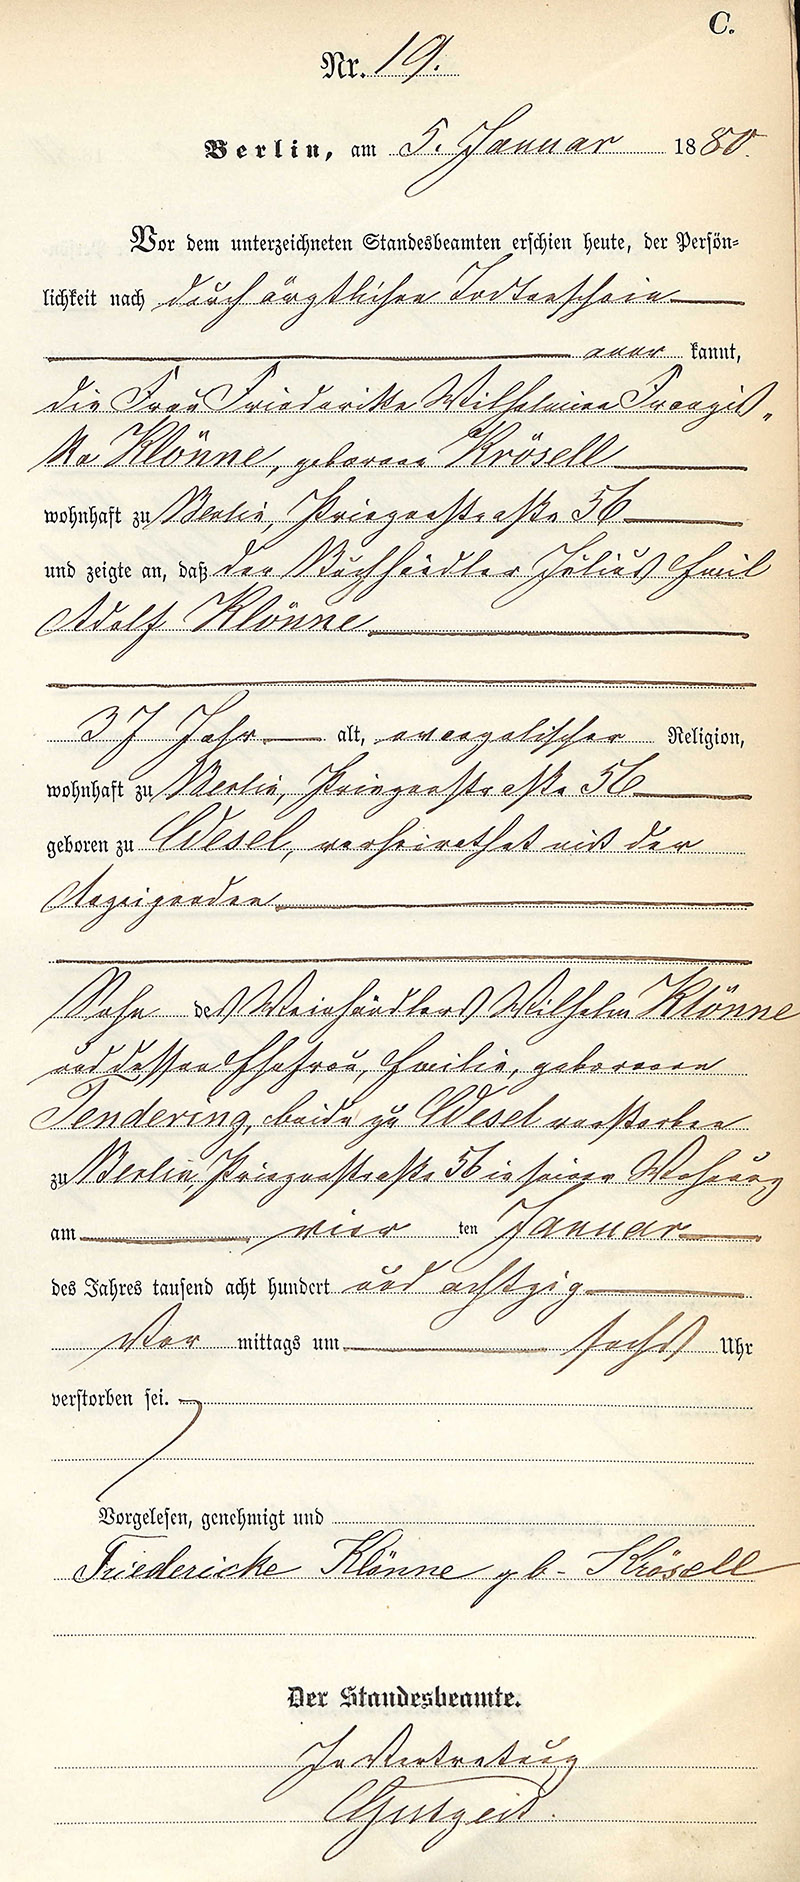 C.
Nr. 19.
Berlin, am 5. Januar 1880.
Vor dem unterzeichneten Standesbeamten erschien heute, der Persön=
lichkeit nach durch ärztlichen Todtenschein
aner kannt,
die Frau Friederike Wilhelmine Franzis-
ka Klönne, geborene Krösell
wohnhaft zu Berlin, Prinzenstraße 56
und zeigte an, daß der Buchhändler Julius Emil
Adolf Klönne
37 Jahr alt, evangelischer Religion,
wohnhaft zu Berlin, Prinzenstraße 56
geboren zu Wesel, verheirathet mit der
Anzeigenden
Sohn des Weinhändlers Wilhelm Klönne
und dessen Ehefrau, Emilie, geborenen
Tendering, beide zu Wesel verstorben
zu Berlin, Prinzenstraße 56 in seiner Wohnung
am vier ten Januar
des Jahres tausend acht hundert und achtzig
Vor mittags um sechs Uhr
verstorben sei.
Vorgelesen, genehmigt und
Friedericke Klönne geb- Krösell
Der Standesbeamte.
In Vertretung
Gutzeit.